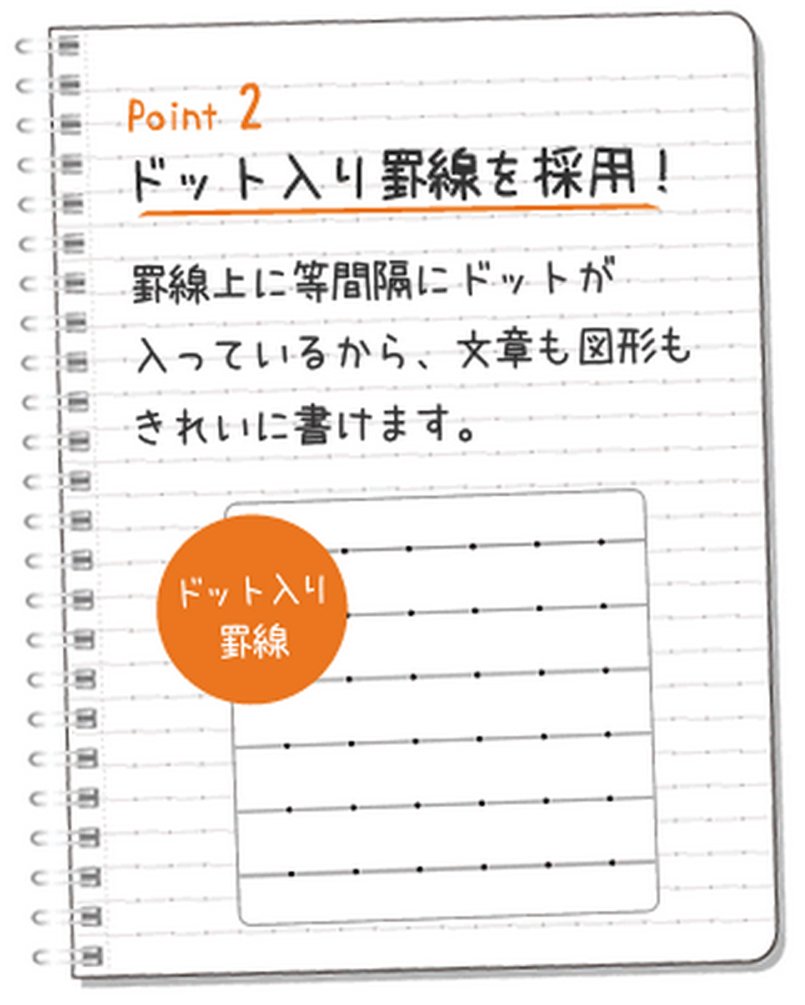 Point 2
ドット入り罫線を採用！
罫線上に等間隔にドットが
入っているから、文章も図形も
きれいに書けます。
ドット入り
罫線